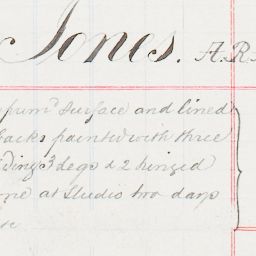 Jones. A.R.
surface and lined
backs painted with three
3 legs & 2 hinged
at Studio two days